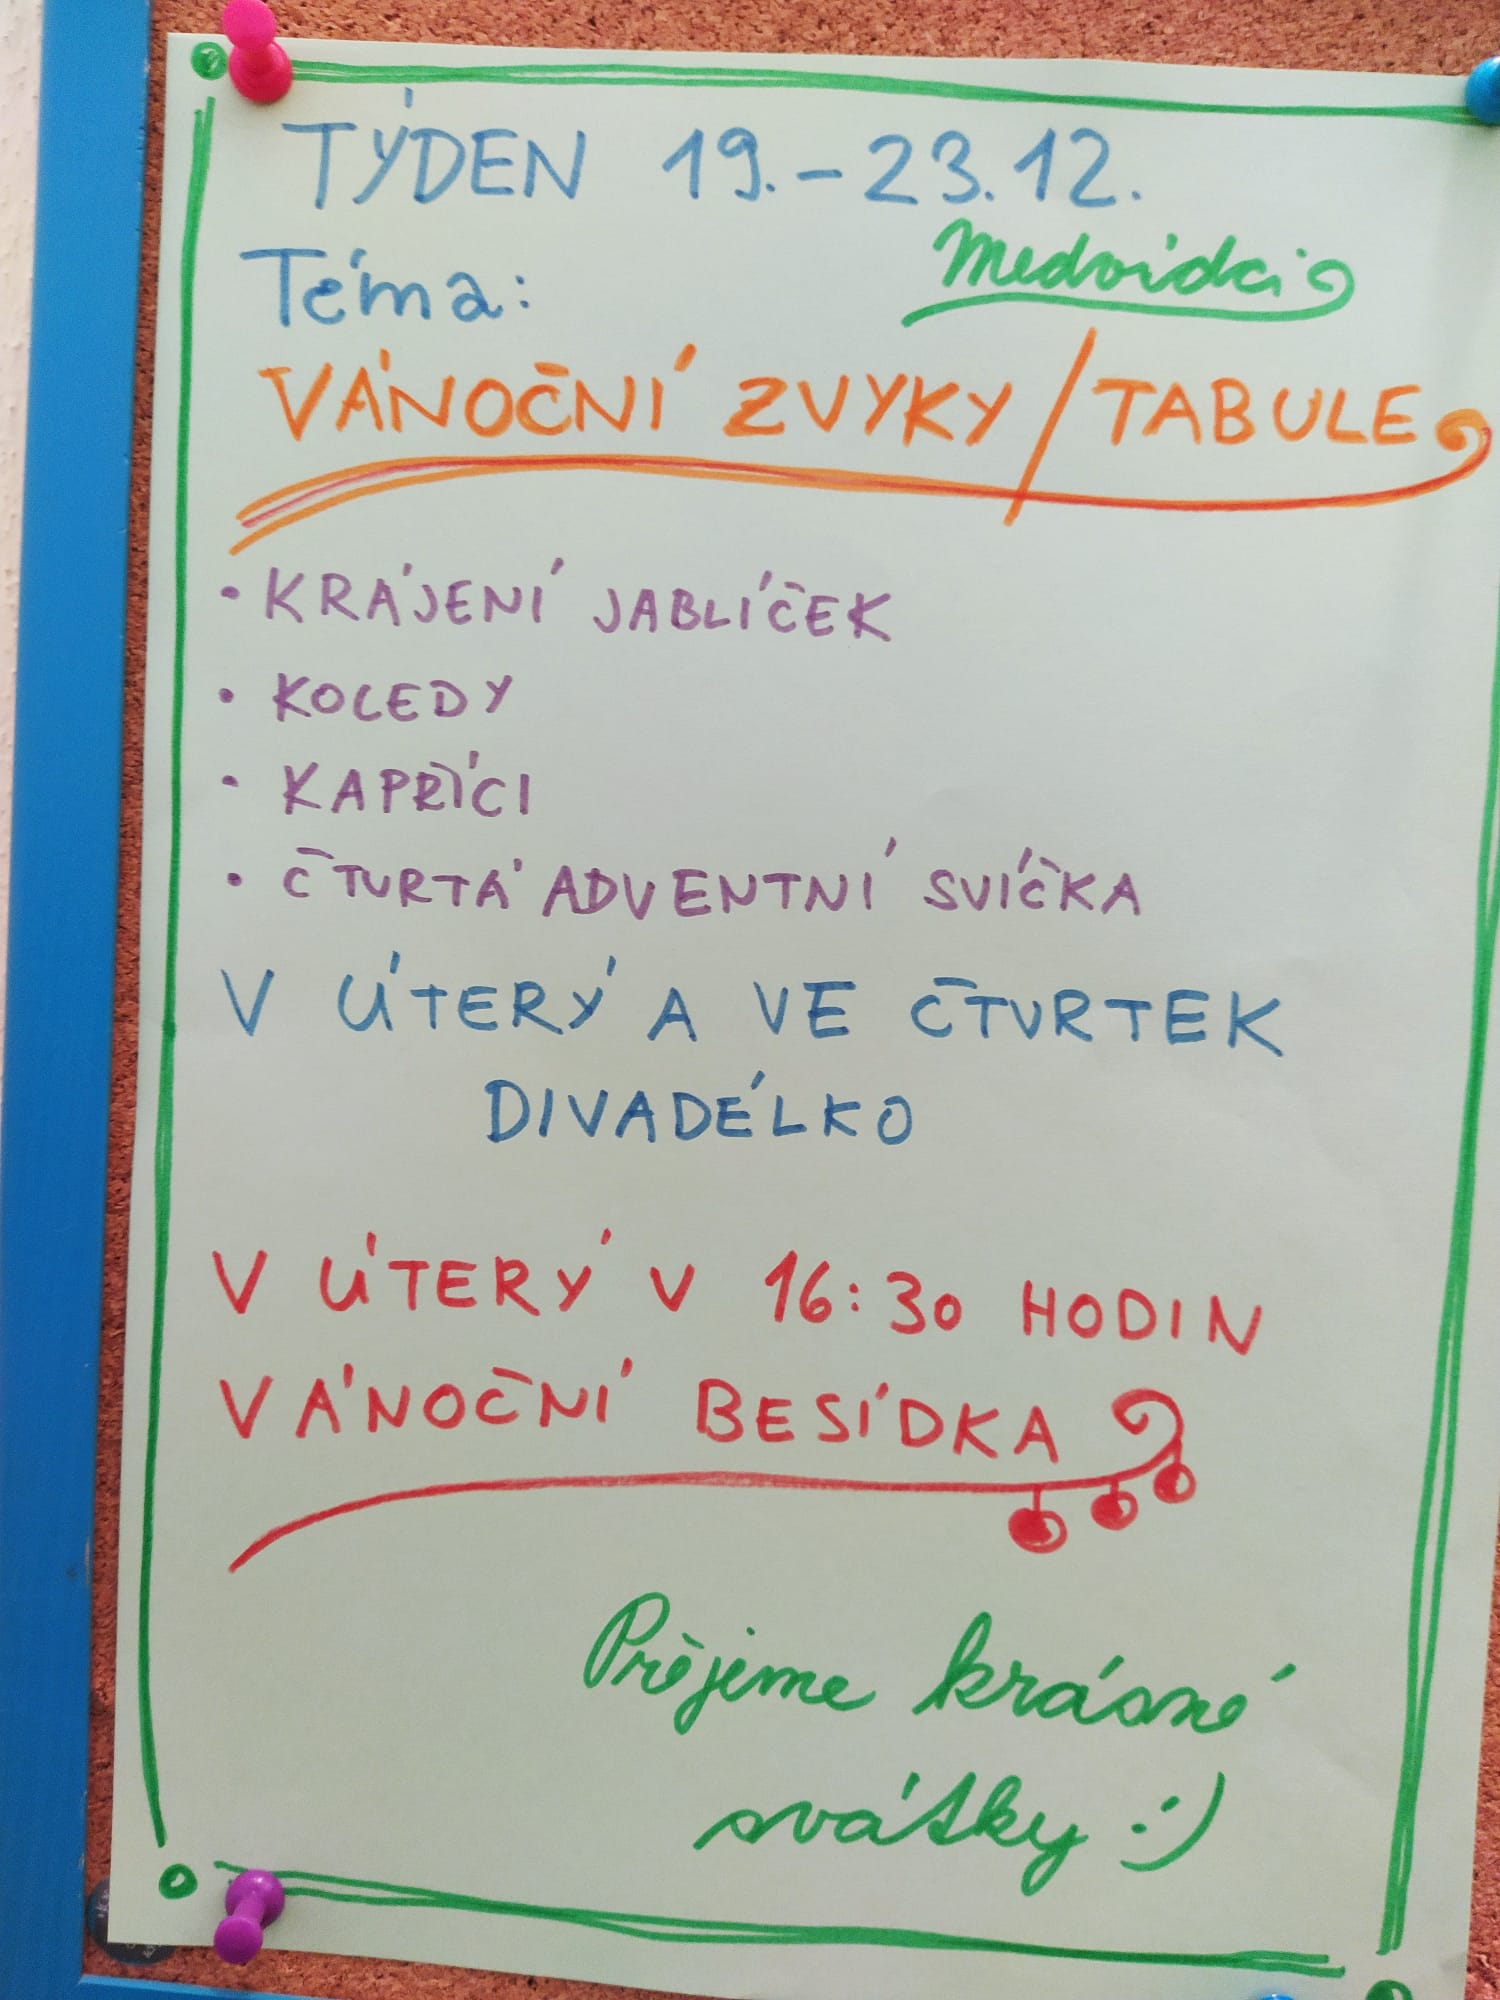 TÝDEN 19.-23.12.
Medvídci
Téma:
VÁNOČNÍ ZVYKY/TABULE
• KRÁJENÍ JABLÍČEK
• KOLEDY
• KAPŘÍCI
• ČTVRTÁ ADVENTNÍ SVÍČKA
V ÚTERÝ A VE ČTVRTEK
DIVADÉLKO
V ÚTERÝ V 16:30 HODIN
VÁNOČNÍ BESÍDKA
Přejeme krásné
svátky :)